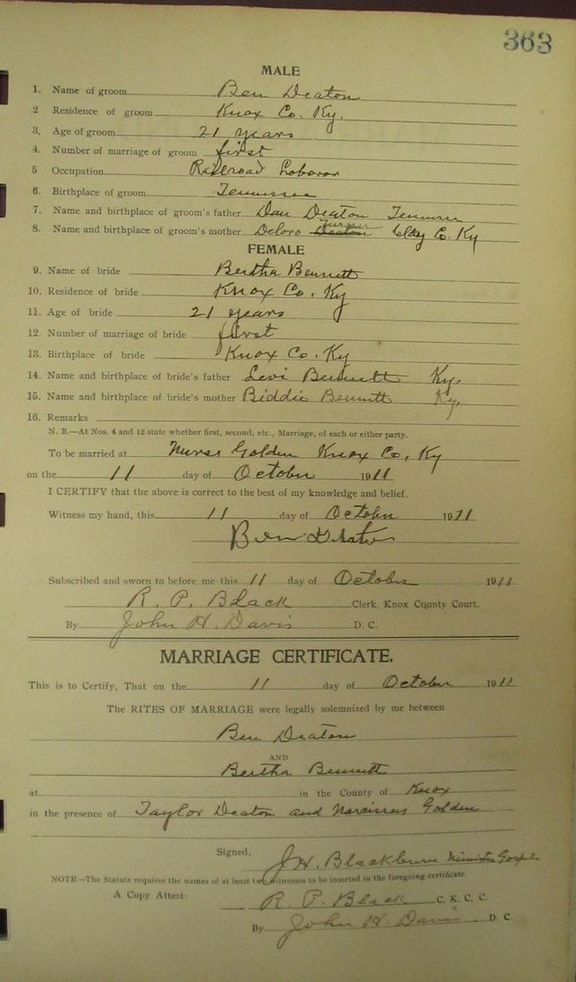 363
MALE
1. Name of groom Ben Deaton
2 Residence of groom Knox Co. Ky.
3. Age of groom 21 years
4. Number of marriage of groom first
5 Occupation Railroad Laboror
6. Birthplace of groom Tennessee
7. Name and birthplace of groom's father Dan Deaton Tennessee
8. Name and birthplace of groom's mother Deloro Deaton Turner Clay Co. Ky
FEMALE
9. Name of bride Bertha Bennett
10. Residence of bride Knox Co. Ky
11. Age of bride 21 years
12. Number of marriage of bride first
13. Birthplace of bride Knox Co. Ky
14. Name and birthplace of bride's father Levi Bennett Ky.
15. Name and birthplace of bride's mother Biddie Bennett Ky.
16. Remarks
N. B.—At Nos. 4 and 12 state whether first, second, etc., Marriage, of each or either party.
To be married at Golden Knox Co, Ky
on the 11 day of October 1911
I CERTIFY that the above is correct to the best of my knowledge and belief.
Witness my hand, this 11 day of October 1911
Ben Deaton
Subscribed and sworn to before me this 11 day of October 1911
R. P. Black Clerk, Knox County Court.
By John H. Davis D. C.
MARRIAGE CERTIFICATE.
This is to Certify, That on the 11 day of October 1911
The RITES OF MARRIAGE were legally solemnized by me between
Ben Deaton
AND
Bertha Bennett
at in the County of Knox
in the presence of Taylor Deaton and Narcissus Golden
Signed, J H. Blackburn Minister Gospel
NOTE—The Statute requires the names of at least two witnesses to be inserted in the foregoing certificate.
A Copy Attest: R. P. Black C. K. C. C.
By John H. Davis D. C.